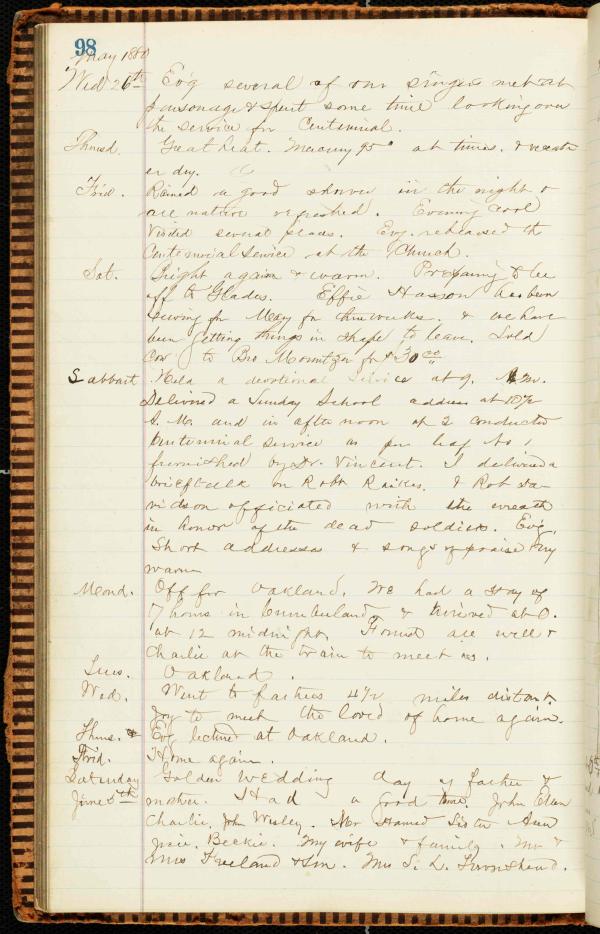 98
May 1880
Wed 26th Evg several of our singers met at
parsonage & spent some time looking over
the service for Centennial.
Thursd. Great heat. Mercury 95° at times. & weath
er dry.
Frid. Rained a good shower in the night &
all nature refreshed. Evening cool
Visited several places. Evg. rehearsed th
Centennial Service at the Church.
Sat. Bright again & warm. Preparing to be
off to Glades. Effie Hasson has been
sewing for Mary for three weeks. & we have
been getting things in shape to leave. Sold
Cow to Bro for $30.00
Sabbath Held a devotional Service at 9. A.M.
Delivered a Sunday School address at 10½
A.M. and in afternoon at 2 conducted
Centennial service as per leaf No 1
furnished by Dr. Vincent. I delivered a
brief talk on Robt Raikes. & Rob Da-
vidson officiated with the wreath
in honor of the dead soldiers. Evg.
Short addresses & songs of praise. Very
warm
Mond. Off for Oakland. We had a stay of
7 hours in Cumberland & arrived at O.
at 12 midnight. Found all well &
Charlie at the train to meet us.
Tues. Oakland.
Wed. Went to fathers 4½ miles distant.
Joy to meet the loved of home again.
Thurs. & Evg lectured at Oakland.
Frid. Home again.
Saturday Golden Wedding day of father &
June 5th mother. Had a good time. John Elen
Charlie, John Wesley. Sister Ann
Josie. Beckie. My wife & family. Mr &
Mrs Freeland & Son. Mrs S. L. Townshend.